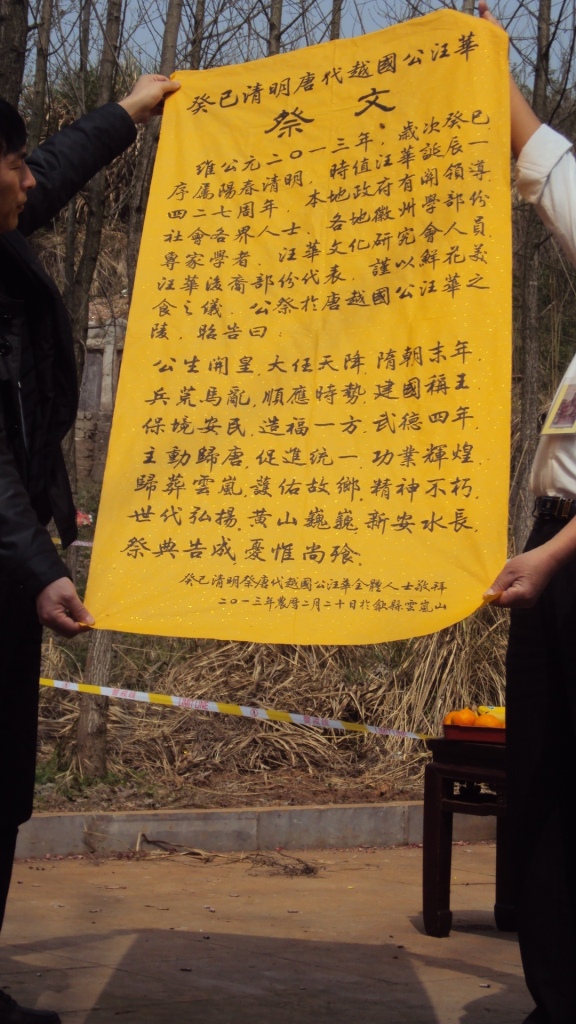 癸巳清明唐代越國公汪華
祭文
維公元二〇一三年，歲次癸巳
序屬陽春清明，時值汪華誕辰一
四二七周年，本地政府有關領導
社會各界人士、各地徽州學部份
專家學者、汪華文化研究會人員
汪華後裔部份代表，謹以鮮花美
食之儀，公祭於唐越國公汪華之
陵，昭告曰：
公生開皇，大任天降，隋朝末年，
兵荒馬亂，順應時勢，建國稱王，
保境安民，造福一方，武德四年，
主動歸唐，促進統一，功業輝煌，
歸葬雲嵐，護佑故鄉，精神不朽，
世代弘揚，黃山巍巍，新安水長，
祭典告成，憂惟尚飨，
癸巳清明祭唐代越國公汪華全體人士敬拜
二〇一三年農曆二月二十日於歙縣雲嵐山